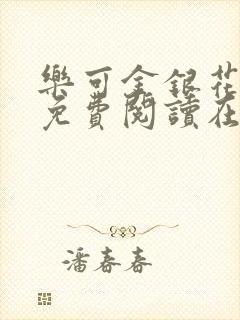 樂可金銀花
免費閱讀在
潘春春